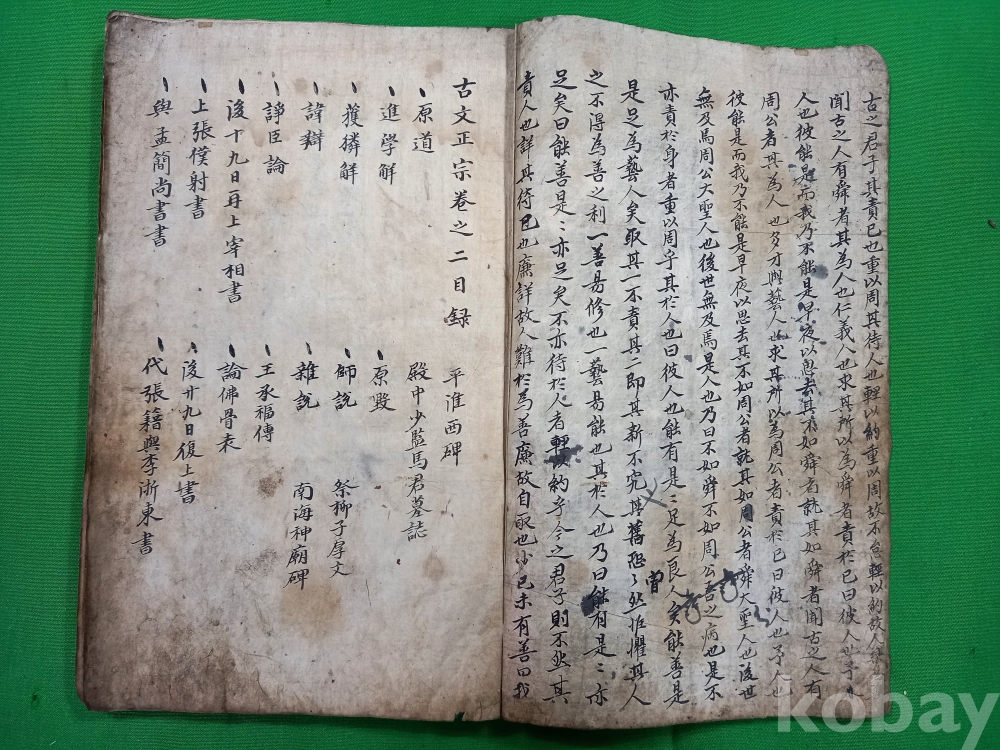 古之君子其責已也重以周其待人也輕以約重以周故不怠輕以約故人
聞古之人有舜者其為人也仁義人也求其所以為舜者責於已曰彼人也予
人也彼能是而我乃不能是早夜以思去其不如舜者就其如舜者聞古之人有
周公者其為人也多才與藝人也求其所以為周公者責於已曰彼人也予人也
彼能是而我乃不能是早夜以思去其不如周公者就其如周公者舜大聖人也後世
無及焉周公大聖人也後世無及焉是人也乃曰不如舜不如周公吾之病也是不
亦責於身者重以周乎其於人也曰彼人也能有是〻足為良人矣能善是
是足為藝人矣取其一不責其二即其新不究其舊恐〻然惟懼其人
之不得為善之利一善易修也一藝易能也其於人也乃曰能有是〻亦
足矣曰能善是〻亦足矣不亦待於人者輕以約乎今之君子則不然其
責人也詳其待已也廉詳故人難於為善廉故自取也少已未有善曰我
曾
古文正宗卷之二目録 平淮西碑
原道 殿中少監馬君墓誌
進學解 原毀
獲獜解 師説 祭柳子厚文
諱辯 雜説 南海神廟碑
諍臣論 王承福傳
後十九日再上宰相書 論佛骨表
上張僕射書 後廿九日復上書
與孟簡尚書書 代張籍與李浙東書
kobay